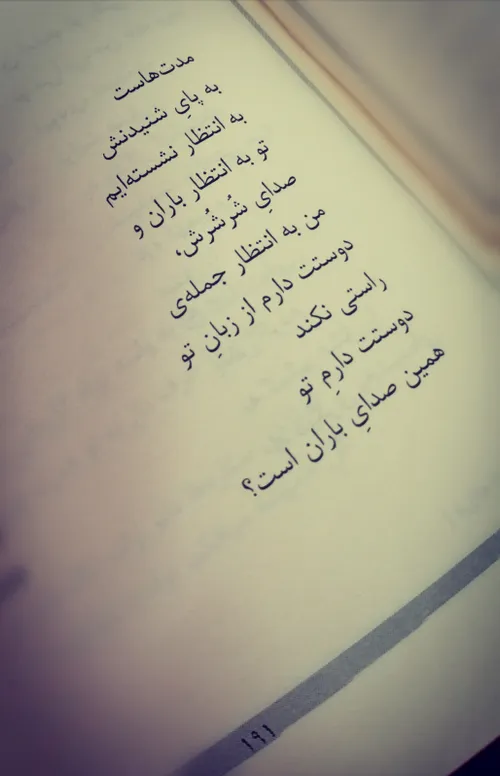 مدت‌هاست
به پایِ شنیدنش
به انتظار نشسته‌ایم
تو به انتظار باران و
صدایِ شُرشُرش،
من به انتظار جمله‌ی
دوستت دارم از زبانِ تو
راستی نکند
دوستت دارمِ تو
همین صدایِ باران است؟
۱۹۱